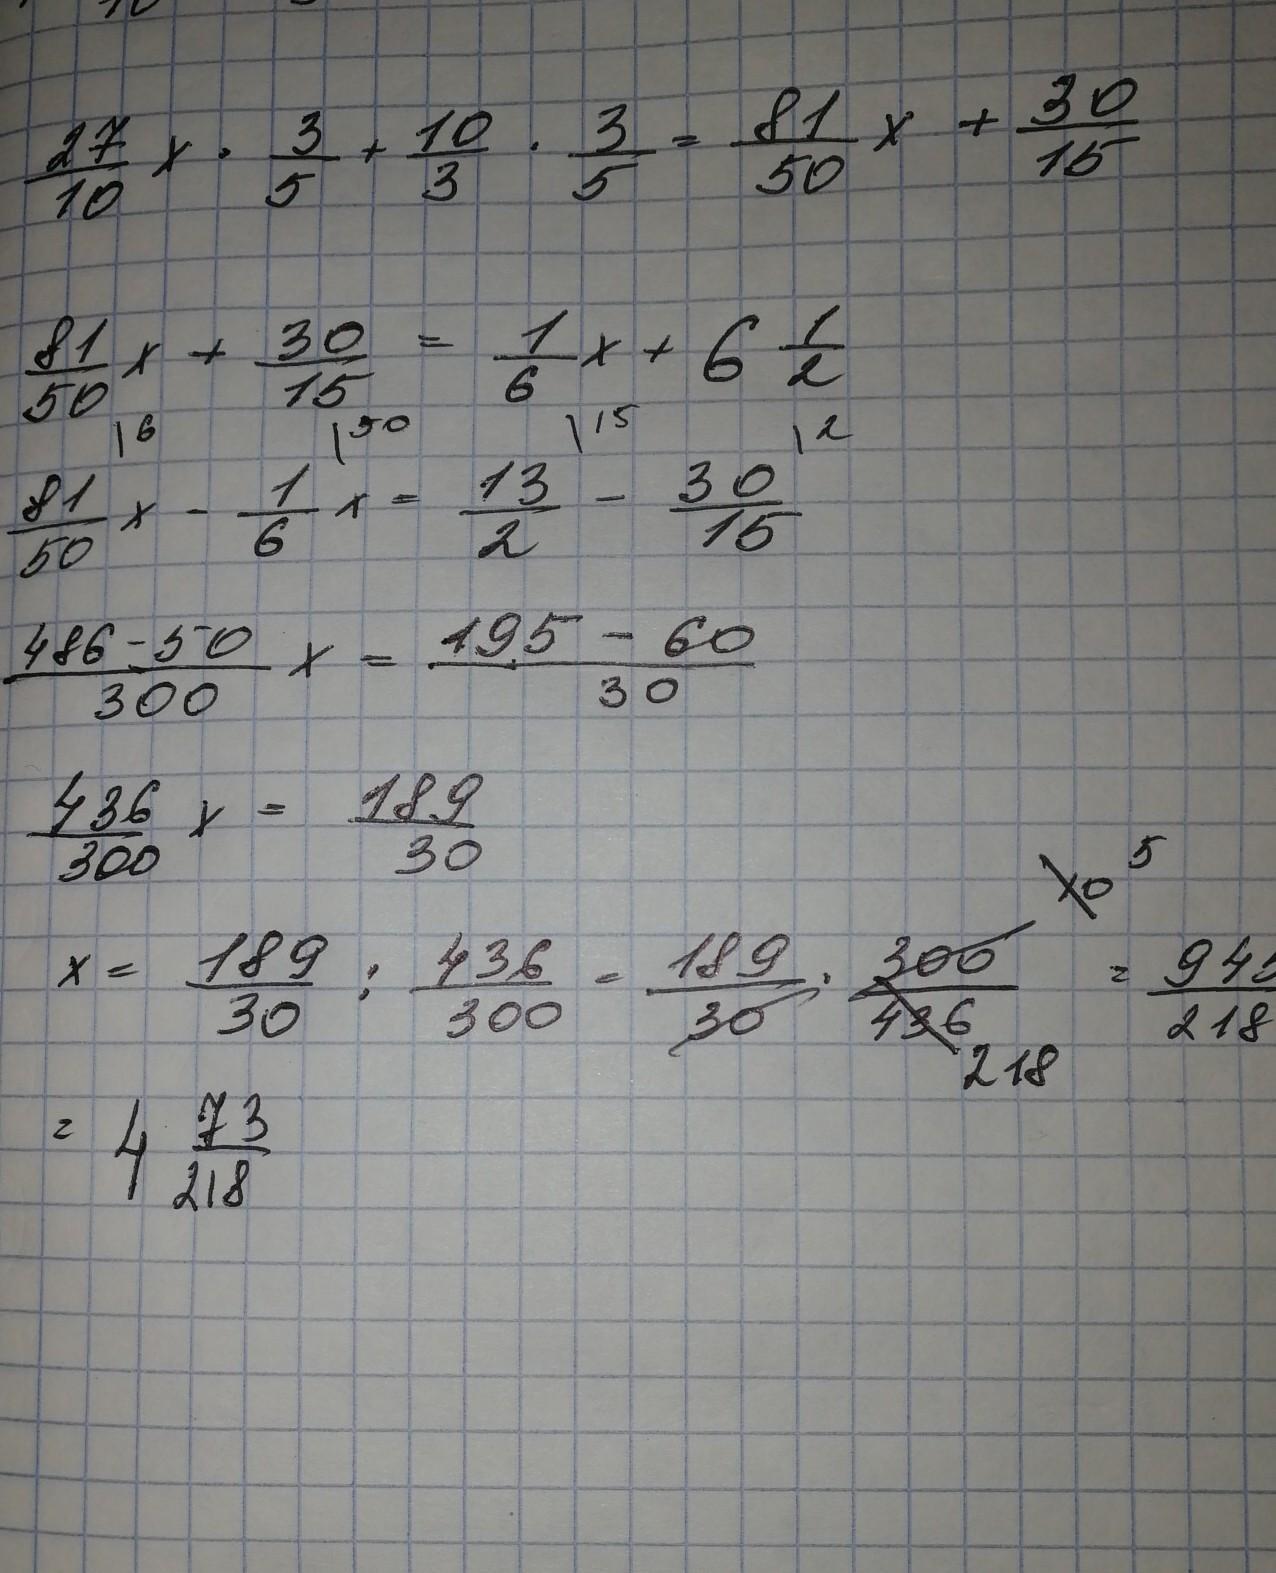 27/10 x · 3/5 + 10/3 · 3/5 = 81/50 x + 30/15
81/50 x + 30/15 = 1/6 x + 6 1/2
\6 \50 \15 \2
81/50 x - 1/6 x = 13/2 - 30/15
486-50/300 x = 195 - 60/30
436/300 x = 189/30
10 5
x = 189/30 : 436/300 = 189/30 · 300/436 = 945/218
218
= 4 73/218